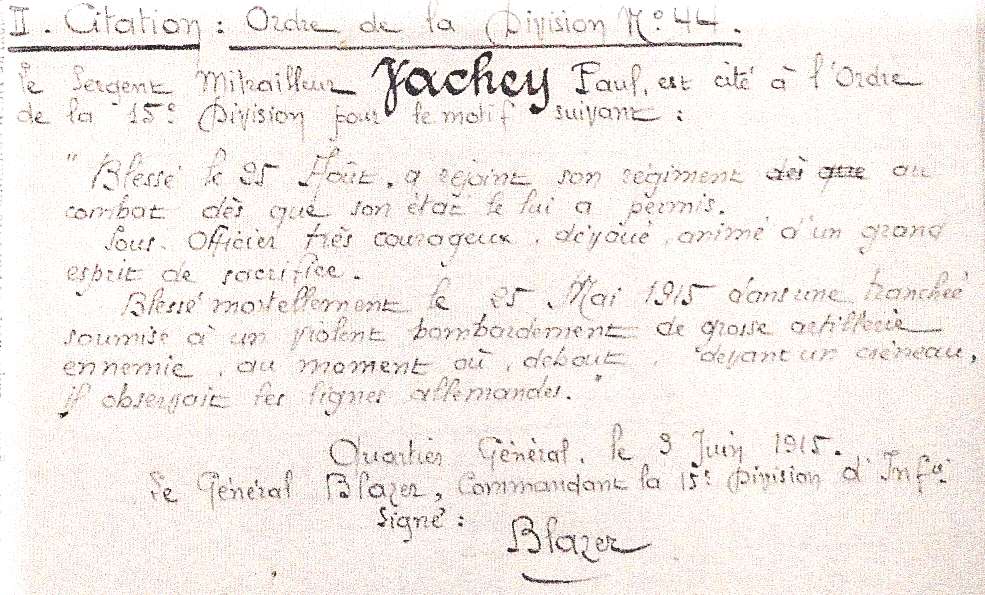 II. Citation : Ordre de la Division N° 44.
Le Sergent Mitrailleur Jachey Paul, est cité à l'Ordre
de la 15e Division pour le motif suivant :
"Bléssé le 25 Août, a rejoint son régiment dès que au
combat dès que son état le lui a permis.
Sous-Officier très courageux, dévoué, animé d'un grand
esprit de sacrifice.
Blessé mortellement le 25 Mai 1915 dans une tranchée
soumise à un violent bombardement de grosse artillerie
ennemie, au moment où, debout, devant un créneau,
il observait les lignes allemandes."
Quartier Général, le 9 Juin 1915.
Le Général Blazer, Commandant la 15e Division d'Infie
Signé :
Blazer